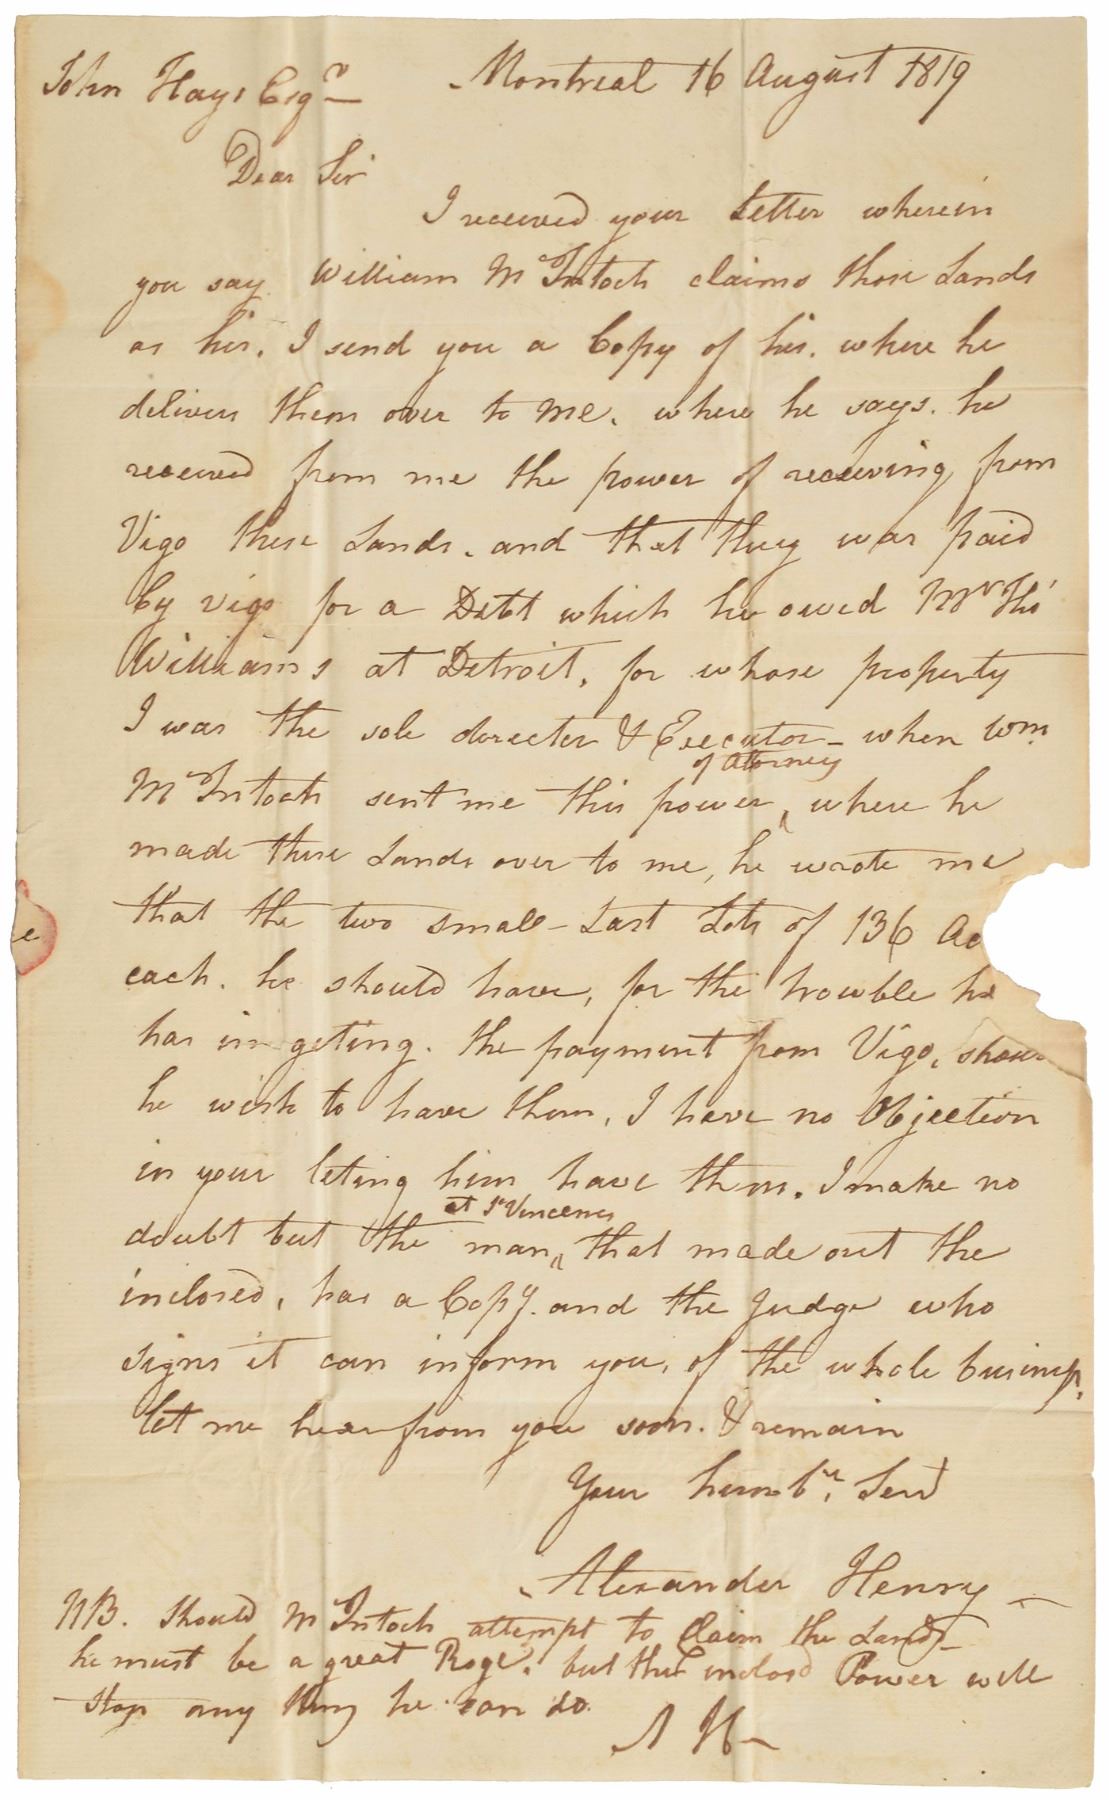 John Hays Esqr Montreal 16 August 1819
Dear Sir
I received your Letter wherein
you say William McIntosh claims those Lands
as his. I send you a Copy of his. where he
delivers them over to me. where he says. he
received from me the power of receiving from
Vigo these Lands. and that they was paid
by vigo for a Debt which he owed Mr Thos
Williams at Detroit, for whose property
I was the sole director & Executor - when Wm
of Attorney
McIntosh sent me this power ‸ where he
made these Lands over to me, he wrote me
that the two small - Last Lots of 136 Ac
each. he should have, for the trouble he
has in geting. the payment from Vigo, shou
he wish to have them, I have no Objection
in your leting him have them. I make no
at St Vincennes
doubt but the man ‸ that made out the
inclosed, has a Copy. and the Judge who
signs it can inform you, of the whole business,
let me hear from you soon. & remain
Your humbl. Servt
Alexander Henry
NB. Should McIntosh attempt to Claim the Lands -
he must be a great Roge. but the Enclosd Power will
stop any thing he can do.
A H
e